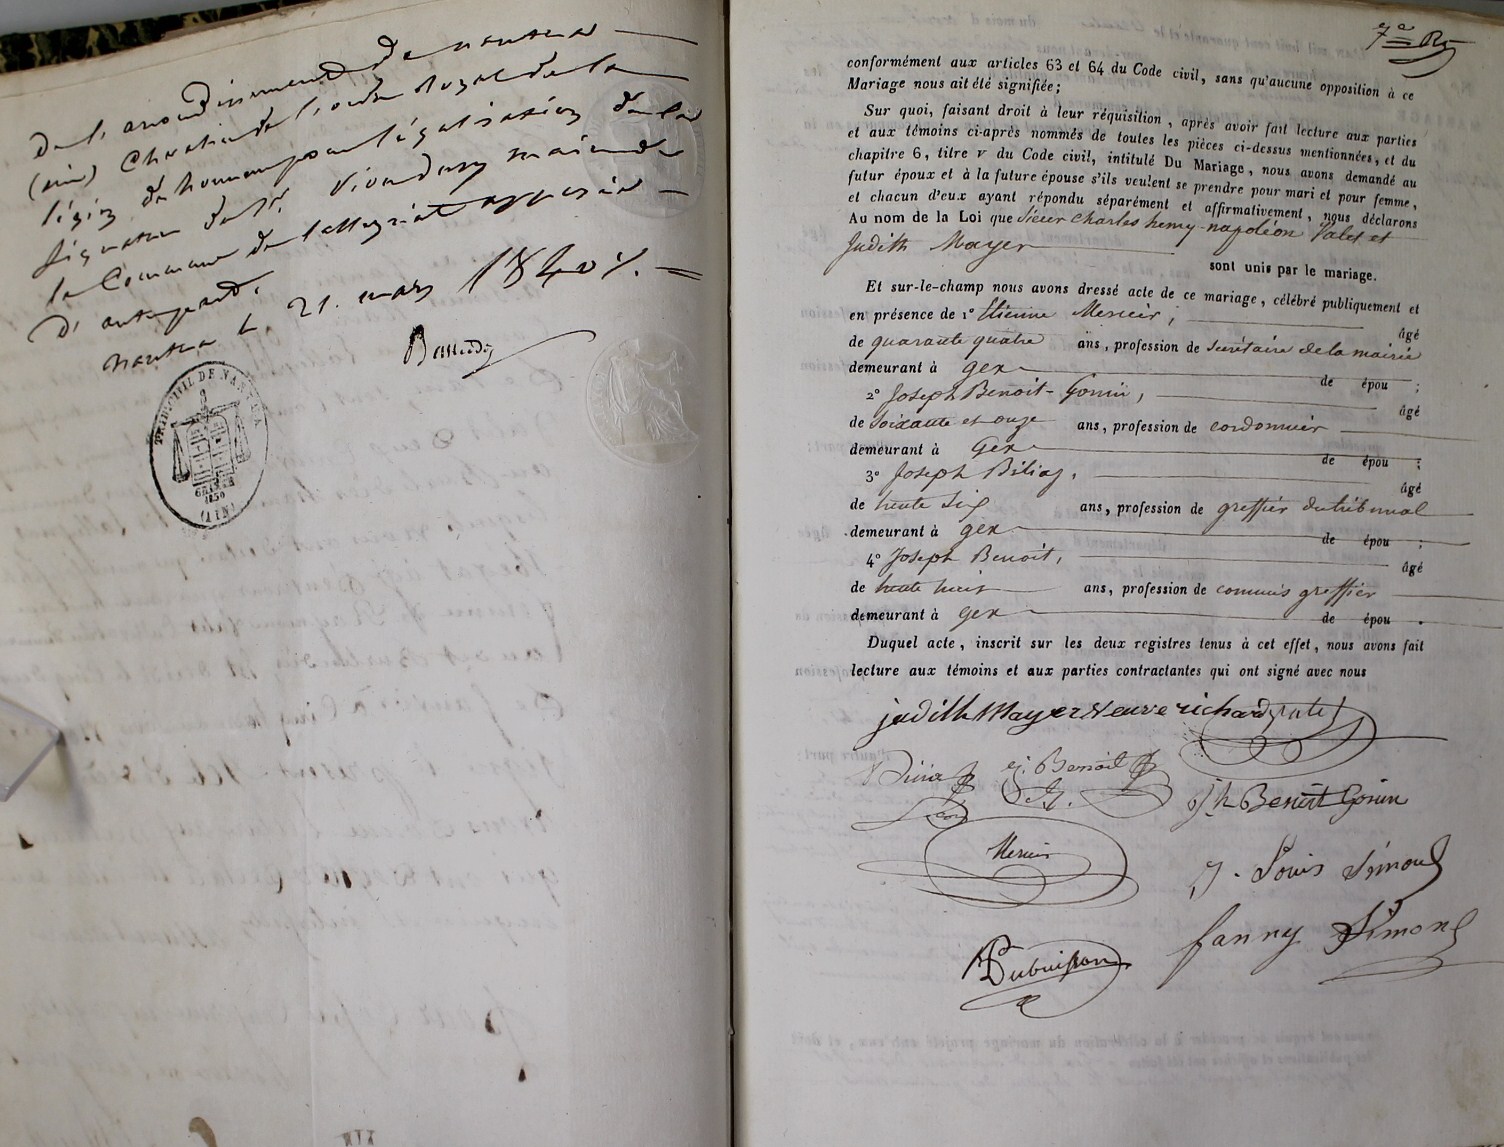 de l'arrondissement de nantua
(ain) Chevalier de l'ordre Royal de la
légion d'honneur pour légalisation de la
signature de Mr. maire de
la Commune de apposée
d'autre part.
nantua le 21. mars 1840 /.
TRIB. CIVIL DE NANTUA
(AIN)
7e
conformément aux articles 63 et 64 du Code civil, sans qu'aucune opposition à ce
Mariage nous ait été signifiée;
Sur quoi, faisant droit à leur réquisition, après avoir fait lecture aux parties
et aux témoins ci-après nommés de toutes les pièces ci-dessus mentionnées, et du
chapitre 6, titre v du Code civil, intitulé Du Mariage, nous avons demandé au
futur époux et à la future épouse s'ils veulent se prendre pour mari et pour femme,
et chacun d'eux ayant répondu séparément et affirmativement, nous déclarons
Au nom de la Loi que Sieur Charles henry napoléon Valet et
Judith Mayer
sont unis par le mariage.
Et sur-le-champ nous avons dressé acte de ce mariage, célébré publiquement et
en présence de 1° Etienne Mercier, âgé
de quarante quatre ans, profession de secrétaire de la mairie
demeurant à gex de épou ;
2° Joseph Benoit-Gonin, âgé
de soixante et onze ans, profession de cordonnier
demeurant à Gex de épou ;
3° Joseph âgé
de trente six ans, profession de greffier du tribunal
demeurant à gex de épou ;
4° Joseph Benoit, âgé
de trente huit ans, profession de commis greffier
demeurant à gex de épou .
Duquel acte, inscrit sur les deux registres tenus à cet effet, nous avons fait
lecture aux témoins et aux parties contractantes qui ont signé avec nous
judith Mayer Veuve richard Valet
j. Benoit
Jh Benoit Gonin
Mercier
J. Louis Simond
fanny Simond
Dubuisson